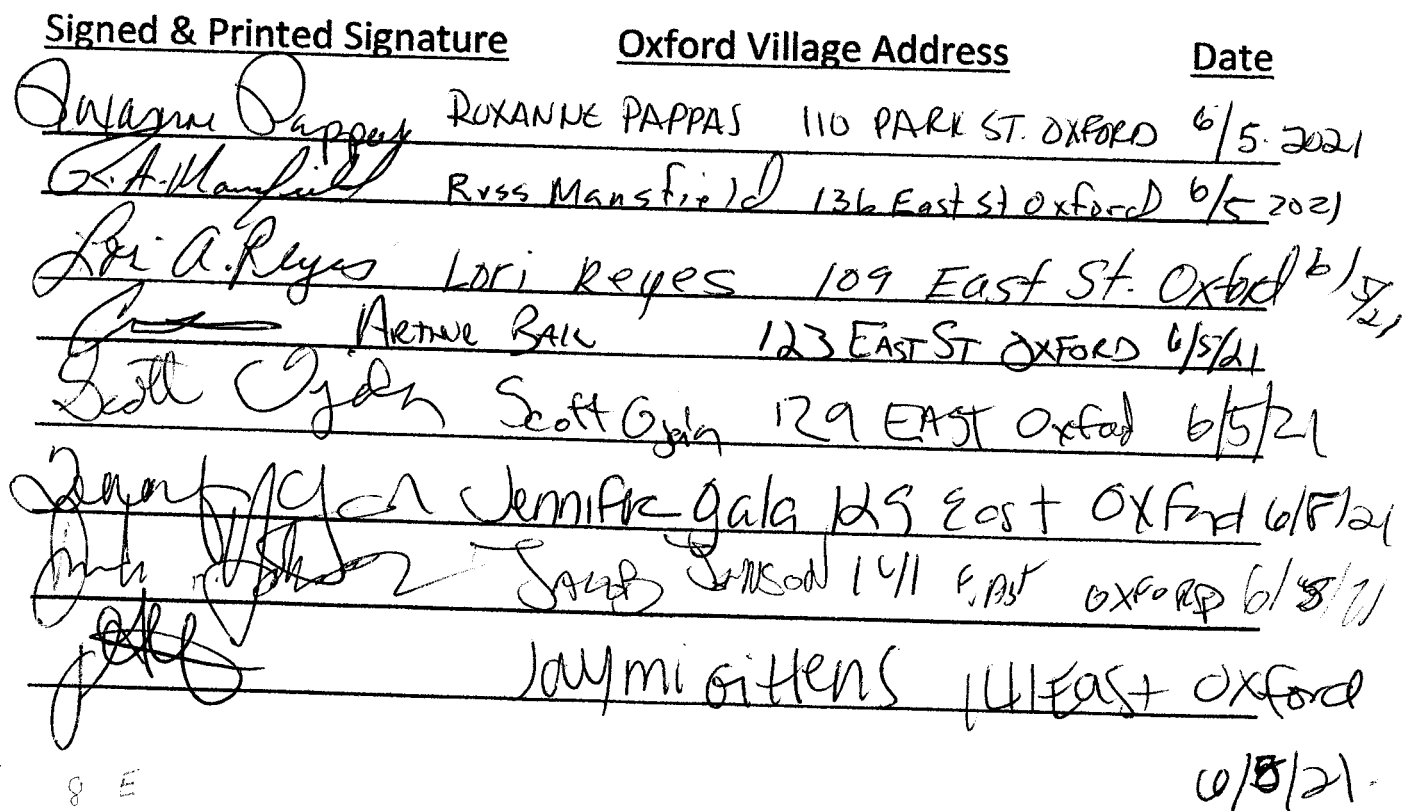 Signed & Printed Signature Oxford Village Address Date
Roxanne Pappas ROXANNE PAPPAS 110 PARK ST. OXFORD 6/5.2021
R.A. Mansfield Russ Mansfield 136 East St Oxford 6/5 2021
Lori A. Reyes Lori Reyes 109 East St. Oxford 6/5/21
123 EAST ST OXFORD 6/5/21
Scott Scott 129 EAST Oxford 6/5/21
Jennifer gala 129 East Oxford 6/5/21
JACOB 141 EAST OXFORD 6/5/21
Jaymi Gittens 141 East Oxford
6/5/21.
8 E